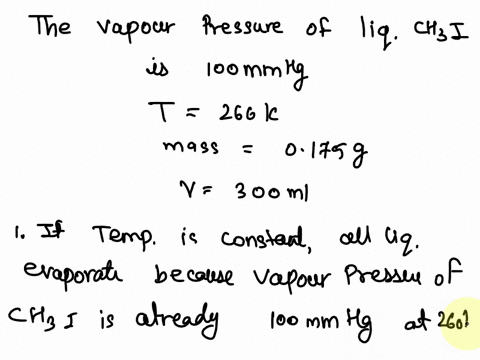 The vapour Pressure of liq. CH3I
is 100 mm Hg
T = 266 K
mass = 0.175 g
V = 300 ml
1. If Temp. is constant, all liq.
evaporate because vapour Pressure of
CH3I is already 100 mm Hg at